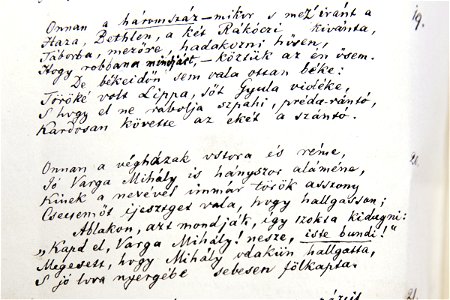 Onnan a háromszáz – mikor s iránt a 19.
Haza, Bethlen, a két Rákóczi kivánta,
Táborba, mezőre, hadakozni hősen,
Hogy robbana mindjárt, – köztük az én ősem.
De békeidőn sem vala ottan béke:
Töröké volt Lippa, sőt Gyula vidéke,
S hogy el ne rabolja szpahi, préda-rántó,
Kardosan követte az ekét a szántó.
Onnan a végházak ostora és réme, 20.
Jó Varga Mihály is hányszor aláméne,
Kinek a nevével immár török asszony
Csecsemőt ijesztget vala, hogy hallgasson;
Ablakon, azt mondják, így szokta kidugni:
„Kapd el, Varga Mihály! nesze, iste bundi!"
Megesett, hogy Mihály odakün hallgatta,
S jó lova nyergébe sebesen fölkapta.
21.